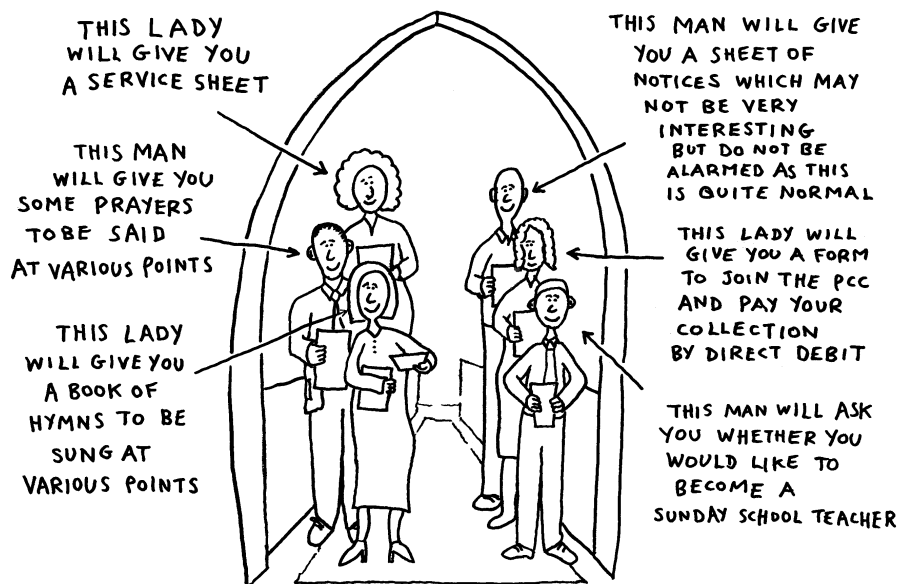 THIS LADY
WILL GIVE YOU
A SERVICE SHEET
THIS MAN
WILL GIVE YOU
SOME PRAYERS
TO BE SAID
AT VARIOUS POINTS
THIS LADY
WILL GIVE YOU
A BOOK OF
HYMNS TO BE
SUNG AT
VARIOUS POINTS
THIS MAN WILL GIVE
YOU A SHEET OF
NOTICES WHICH MAY
NOT BE VERY
INTERESTING
BUT DO NOT BE
ALARMED AS THIS
IS QUITE NORMAL
THIS LADY WILL
GIVE YOU A FORM
TO JOIN THE PCC
AND PAY YOUR
COLLECTION
BY DIRECT DEBIT
THIS MAN WILL ASK
YOU WHETHER YOU
WOULD LIKE TO
BECOME A
SUNDAY SCHOOL TEACHER